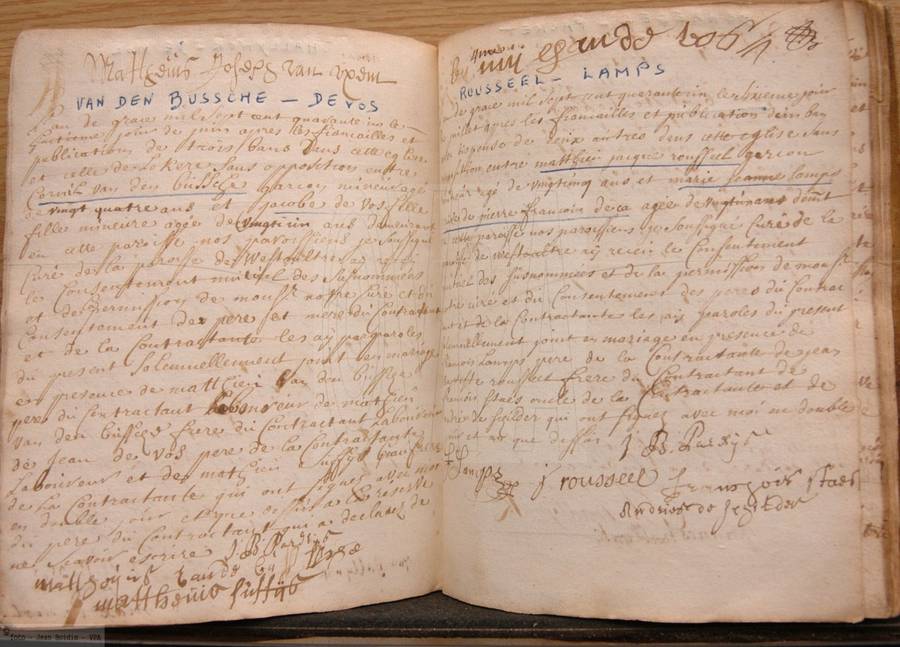 Mattheius Joseph van uxem
VAN DEN BUSSCHE – DEVOS
L'an de grace mil sept cent quarante un le
jour de juin apres les fiancailles et
publications de trois bans dans cette eglise
et celle de Lokere sans opposition entre
Cornil van den büssche garcon mineur agé
de vingt quatre ans et jacobe de Vos fille
fille mineure agée de vingt un ans demeurant
en cette paroisse nos paroissiens je soussigné
Curé de la paroisse de Westoultre ai recu
le Consentement mutuel des susnommees
et de permission de mons.r notre Curé et du
Consentement des pere et mere du Contractant
et de la Contractante les ay par paroles
du present solemnellement joint en mariage
en presence de matthieu van den büssche
pere du Contractant laboureur de mathieu
van den büssche frere du Contractant Laboureur
de jean de Vos pere de la Contractante
Laboureur et de mathieu
de La Contractante qui ont signes avec moi
en double jour et an que dessus a la reserve
du pere du Contractant qui a declarez de
ne scavoir escrire J B Pardijs
mattheijus van de büssche
mattheüis süffijs
ROUSSEEL – LAMPS
de grace mil sept cent quarante un le sixieme jour
de juillet apres les fiancailles et publication d'un ban
et dispense de deux autres dans cette eglise sans
opposition entre matthieu jacque roussel garcon
agé de vingt cinq ans et marie jeanne lamps
de pierre francois deca agee de vingt nœuf ans dem.t
cette paroisse nos paroissiens je soussigne Curé de la
paroisse de westoultre aij recu le Consentement
mutuel des susnommees et de la permission de mons.r
notre Curé et du Consentement des peres du Contractant
et de la Contractante les aij paroles du present
solemnellement joint en mariage en presence de
francois Lamps pere de la Contractante de jean
roussel frere du Contractant de
francois staes oncle de la Contractante et de
de scilder qui ont signez avec moi ne double
jour et an que dessus J B Pardijs
Lamps
J rousseel françois staes
Andries de Scilder
foto - Jean Boidin - VVA